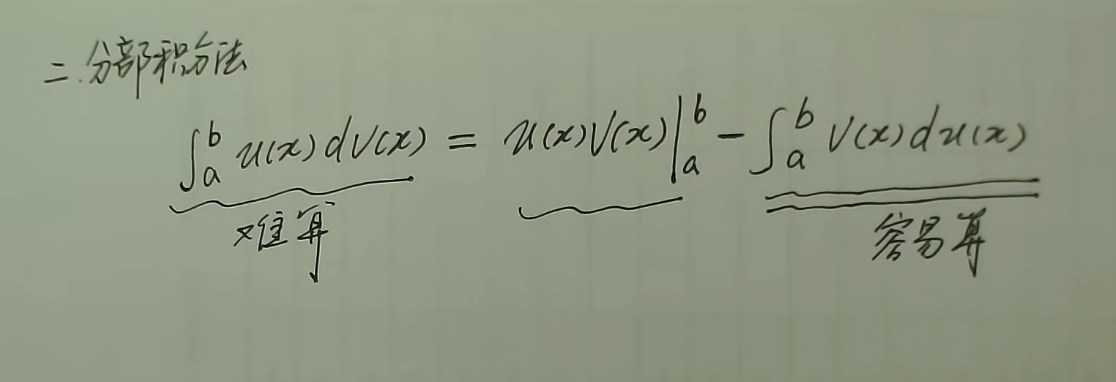 二.分部积分法
∫_a^b u(x)dv(x) = u(x)v(x)|_a^b - ∫_a^b v(x)du(x)
难算 容易算